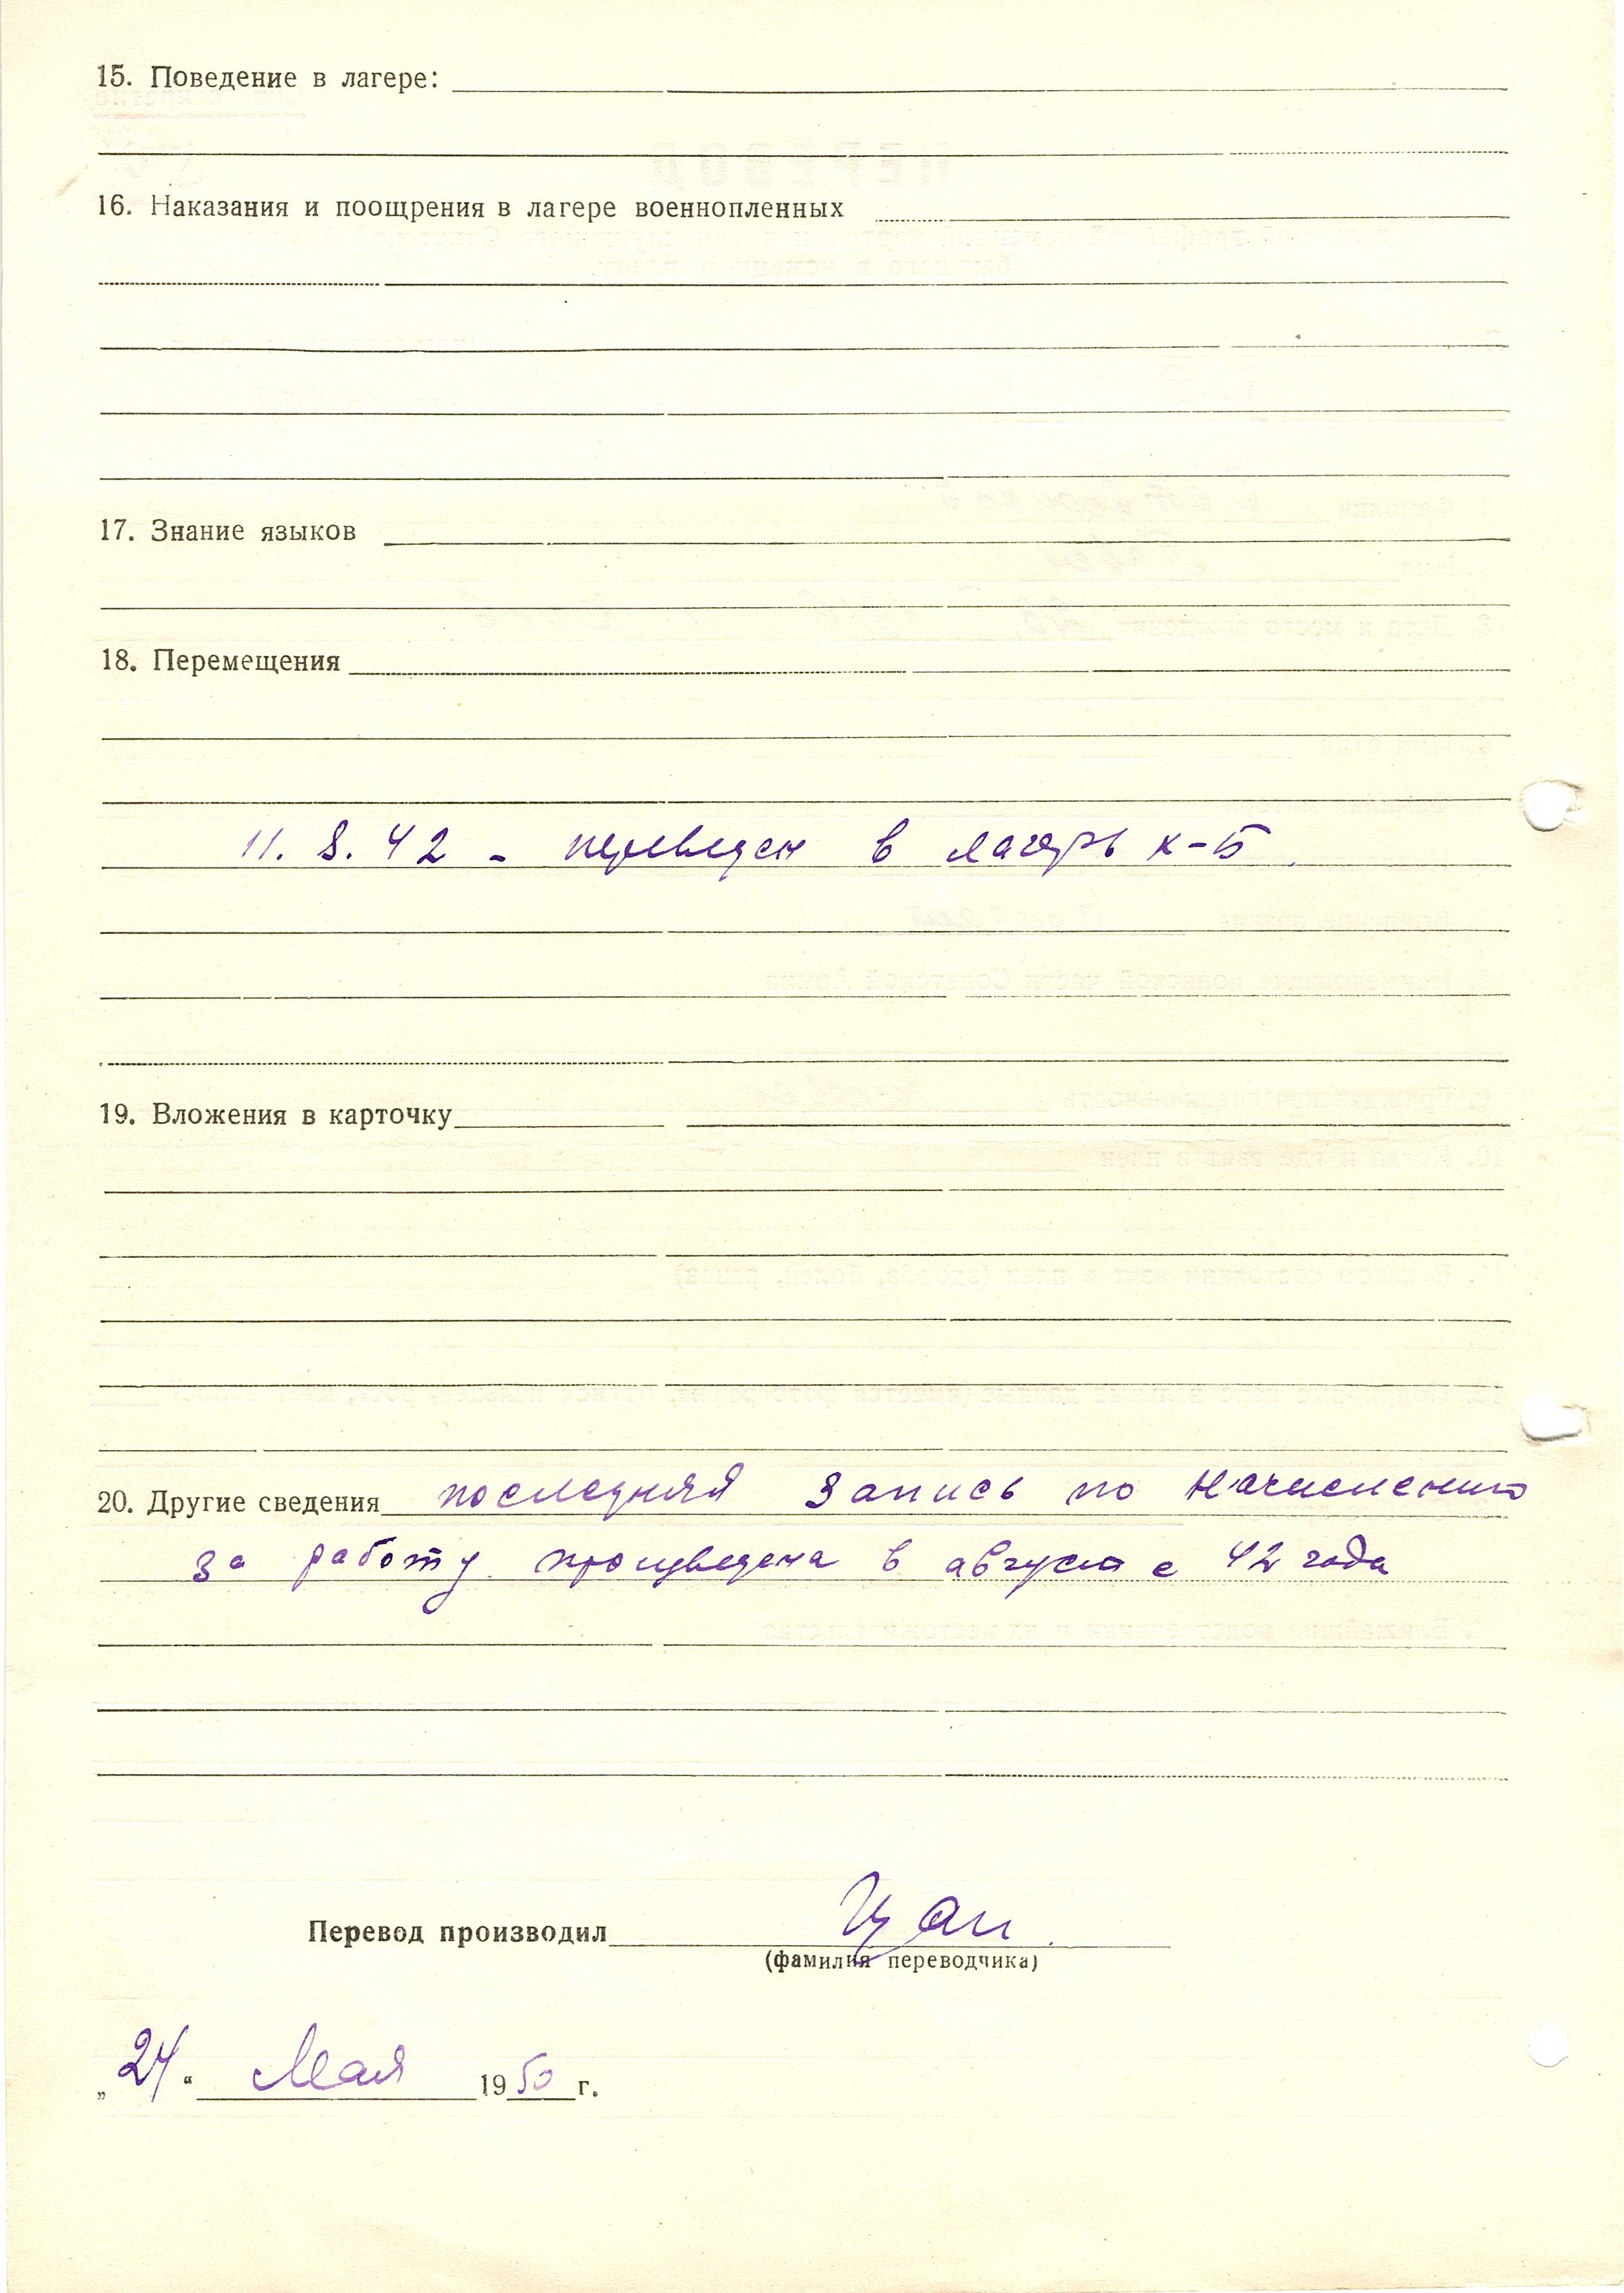 15. Поведение в лагере:
16. Наказания и поощрения в лагере военнопленных
17. Знание языков
18. Перемещения
11. 8. 42 - переведен в лагерь х-Б.
19. Вложения в карточку
20. Другие сведения последняя запись по начислению
за работу произведена в августе 42 года
Перевод производил
(фамилия переводчика)
„24“ Мая 1950 г.